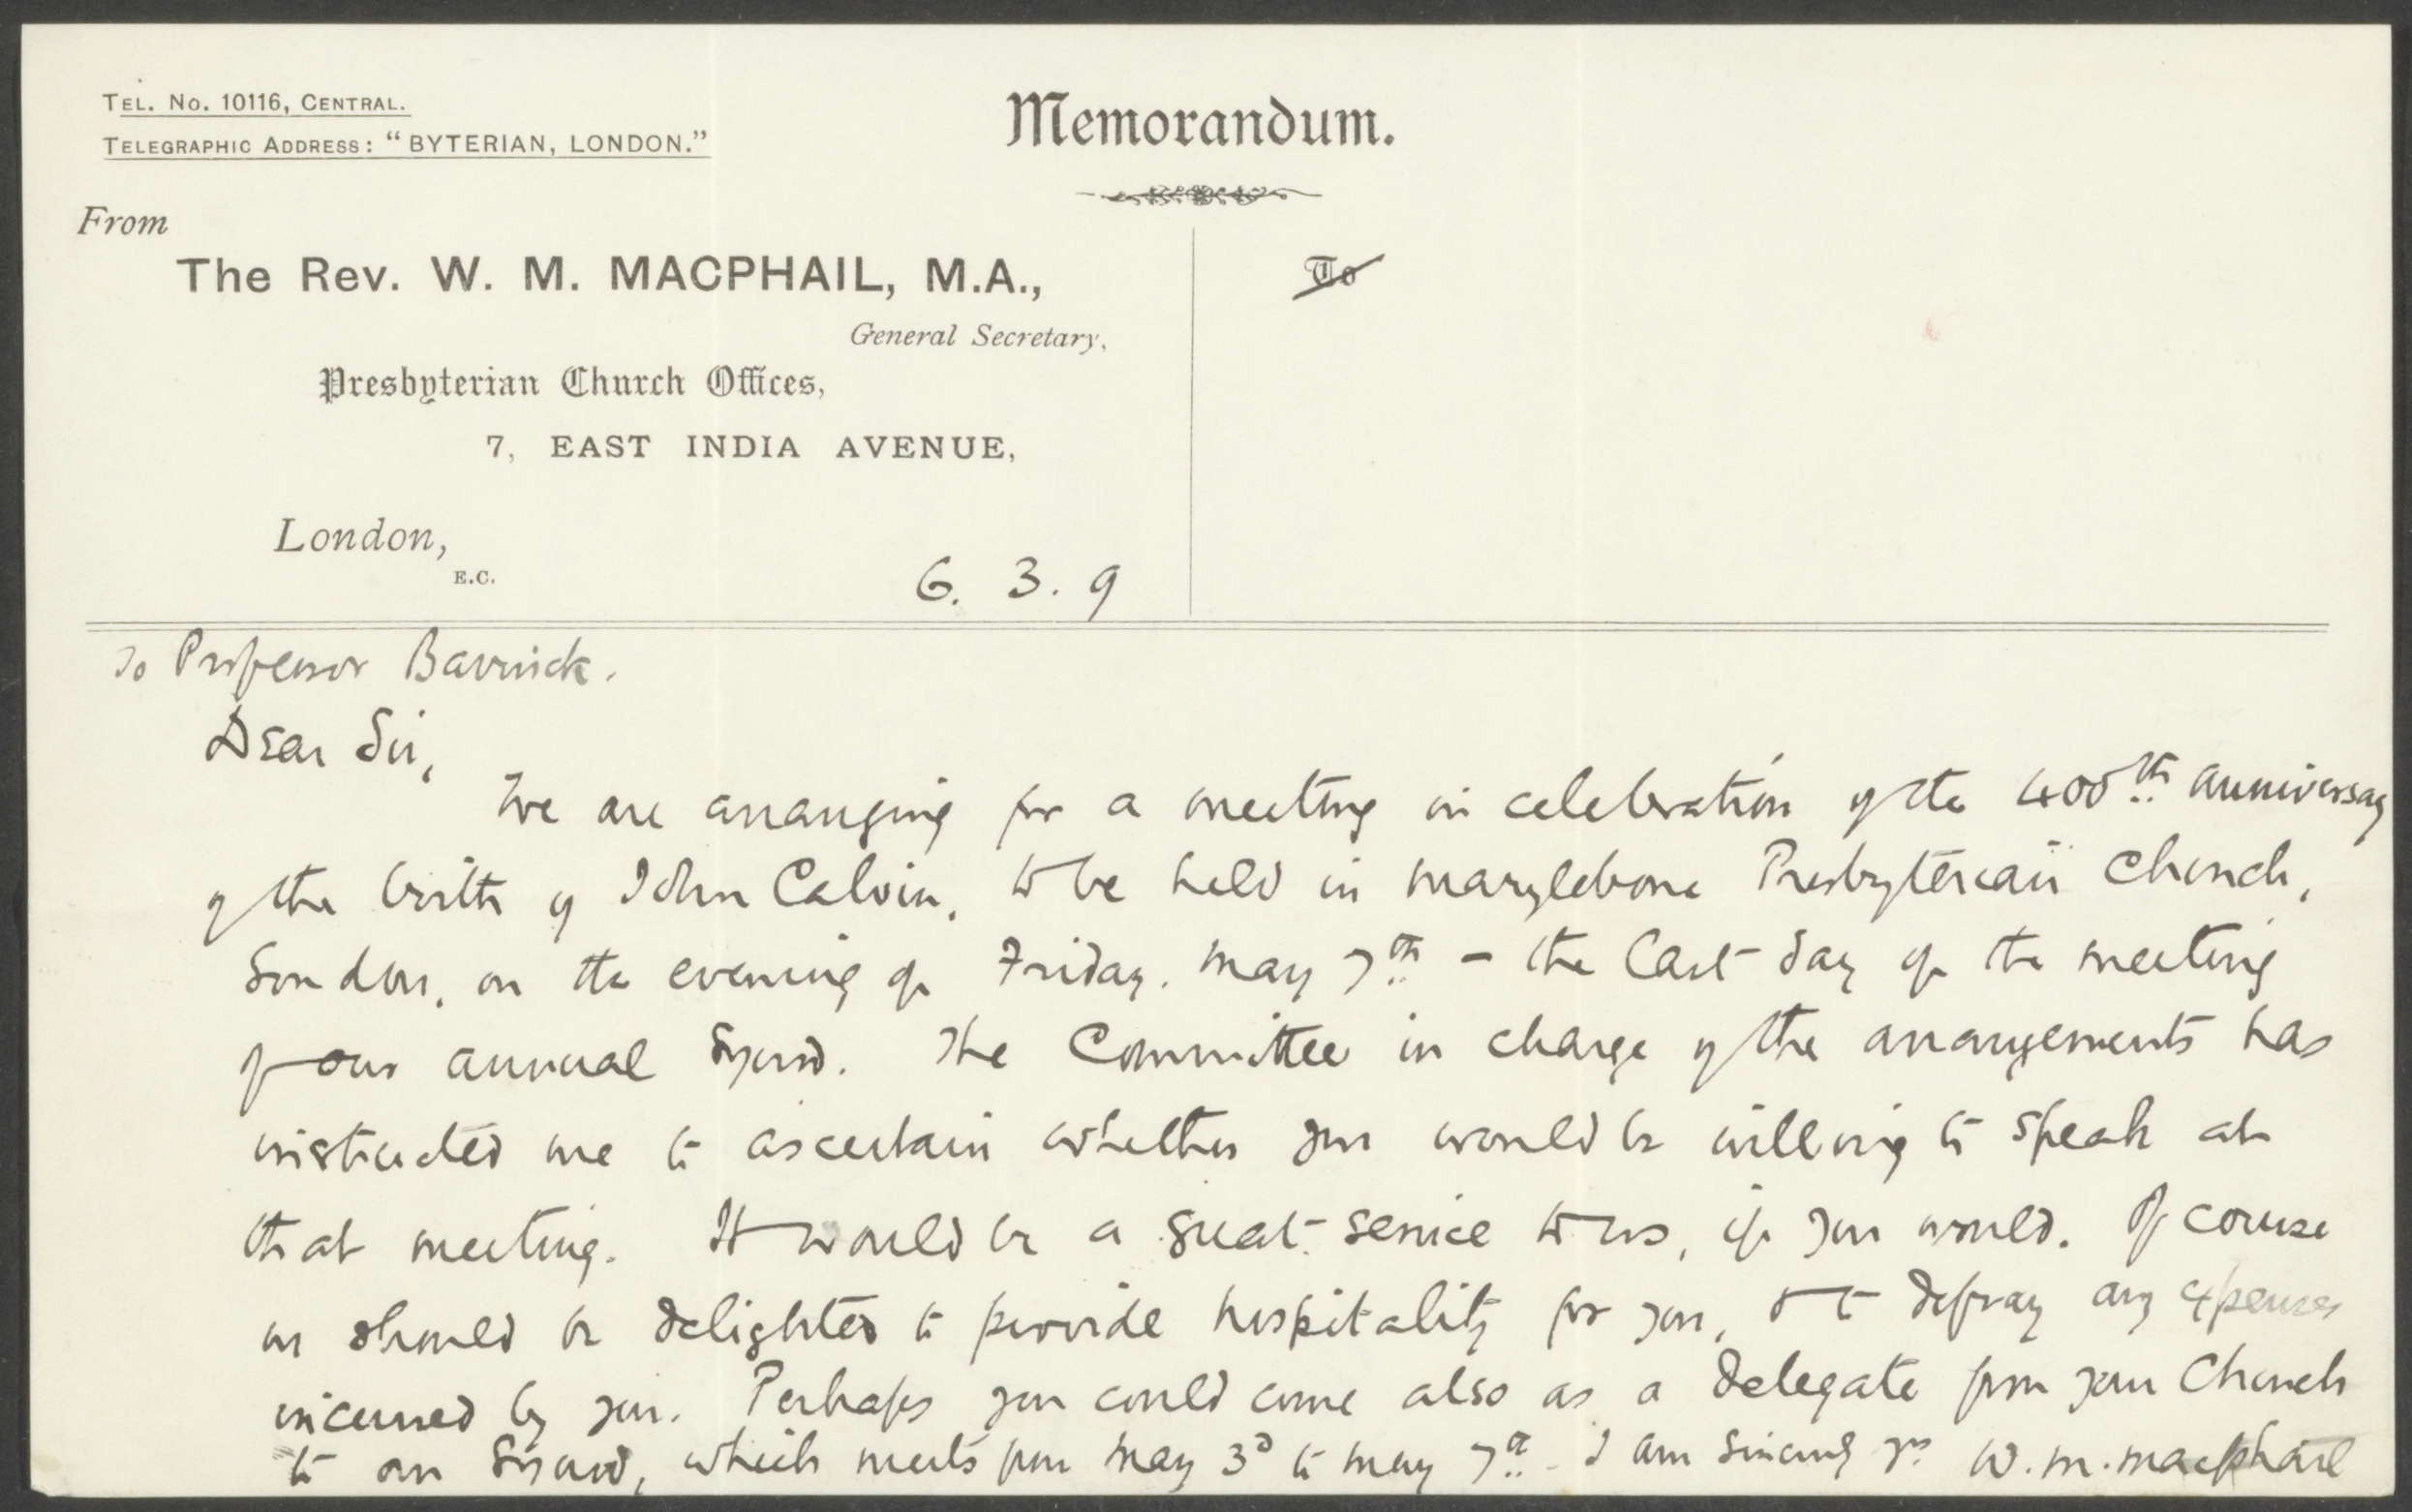 TEL. No. 10116, CENTRAL.
TELEGRAPHIC ADDRESS: "BYTERIAN, LONDON."
Memorandum.
From
The Rev. W. M. MACPHAIL, M.A.,
General Secretary,
Presbyterian Church Offices,
7, EAST INDIA AVENUE,
London,
E.C.
To
6. 3. 9
To Professor Bavinck.
Dear Sir,
We are arranging for a meeting in celebration of the 400th anniversary
of the birth of John Calvin, to be held in Marylebone Presbyterian Church,
London, on the evening of Friday, May 7th - the last day of the meeting
of our annual Synod. The Committee in charge of the arrangements has
instructed me to ascertain whether you would be willing to speak at
that meeting. It would be a great service to us, if you would. Of course
we should be delighted to provide hospitality for you, & to defray any expenses
incurred by you. Perhaps you could come also as a delegate from your Church
to our Synod, which meets from May 3d to May 7th. I am sincerely yrs W. M. Macphail